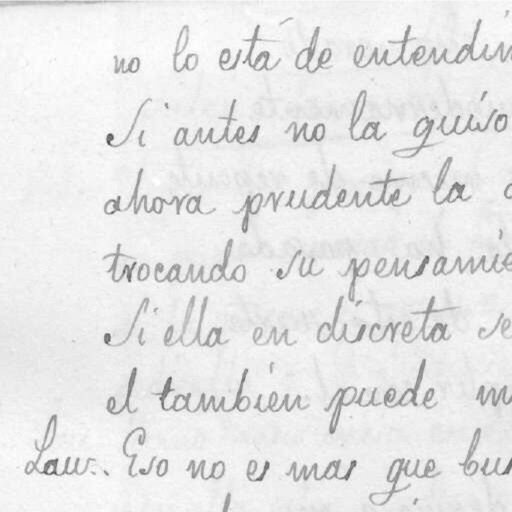 no lo está de entendim
Si antes no la quiso
ahora prudente la
trocando su pensamie
Si ella en discreta se
el tambien puede m
Lau. Eso no es mas que bus